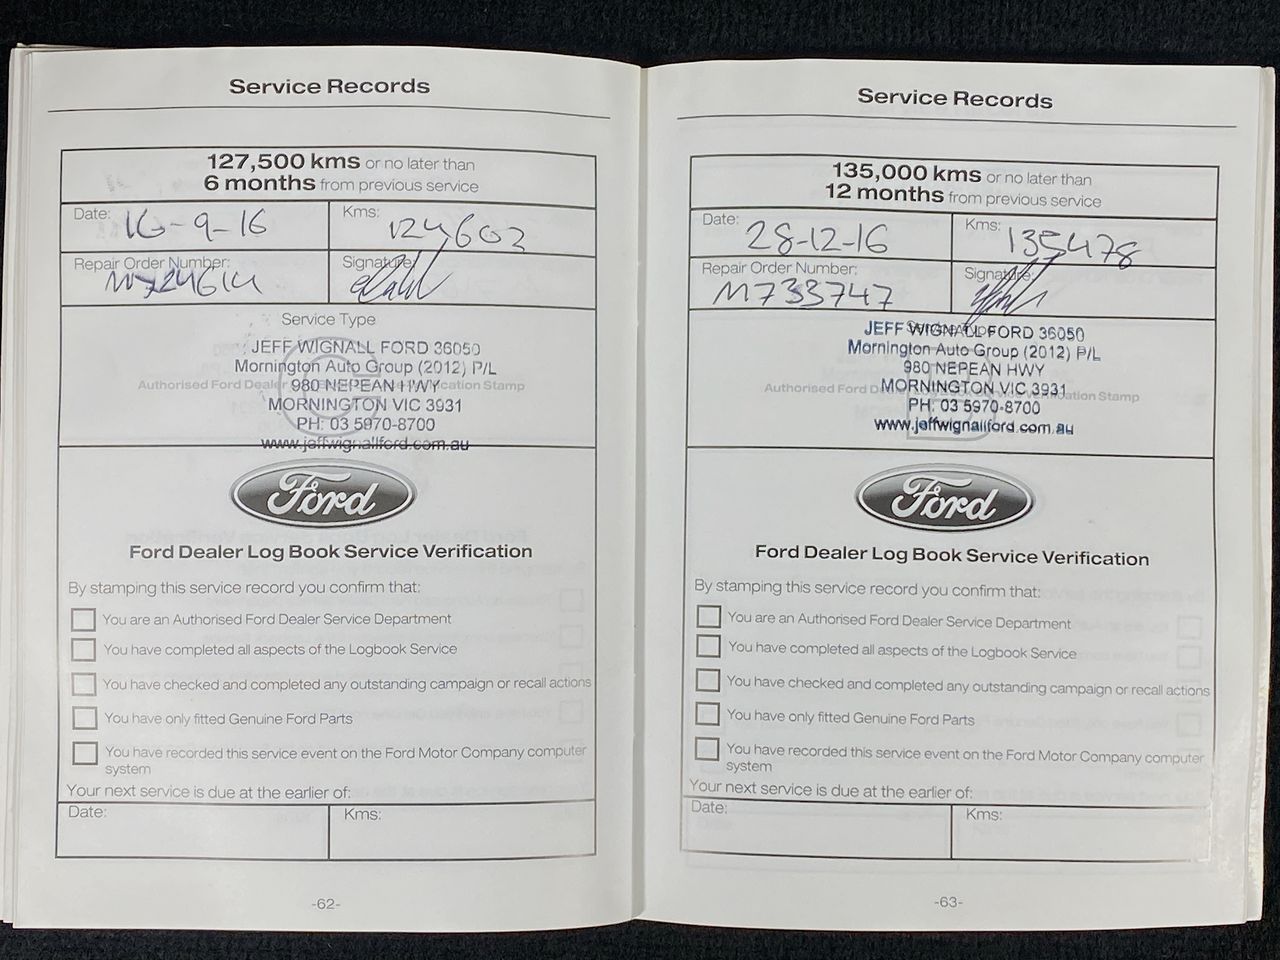 Service Records
127,500 kms or no later than
6 months from previous service
Date: 16-9-16
Kms: 124603
Repair Order Number: M724614
Signature:
Service Type
C
JEFF WIGNALL FORD 36050
Mornington Auto Group (2012) P/L
Authorised Ford Dealer 980 NEPEAN HWY Verification Stamp
MORNINGTON VIC 3931
PH: 03 5970-8700
www.jeffwignallford.com.au
Ford
Ford Dealer Log Book Service Verification
By stamping this service record you confirm that:
You are an Authorised Ford Dealer Service Department
You have completed all aspects of the Logbook Service
You have checked and completed any outstanding campaign or recall actions
You have only fitted Genuine Ford Parts
You have recorded this service event on the Ford Motor Company computer
system
Your next service is due at the earlier of:
Date:
Kms:
-62-
Service Records
135,000 kms or no later than
12 months from previous service
Date: 28-12-16
Kms: 135478
Repair Order Number: M733747
Signature:
JEFF WIGNALL FORD 36050
Mornington Auto Group (2012) P/L
980 NEPEAN HWY
Authorised Ford MORNINGTON VIC 3931 Verification Stamp
PH: 03 5970-8700
www.jeffwignallford.com.au
Ford
Ford Dealer Log Book Service Verification
By stamping this service record you confirm that:
You are an Authorised Ford Dealer Service Department
You have completed all aspects of the Logbook Service
You have checked and completed any outstanding campaign or recall actions
You have only fitted Genuine Ford Parts
You have recorded this service event on the Ford Motor Company computer
system
Your next service is due at the earlier of:
Date:
Kms:
-63-